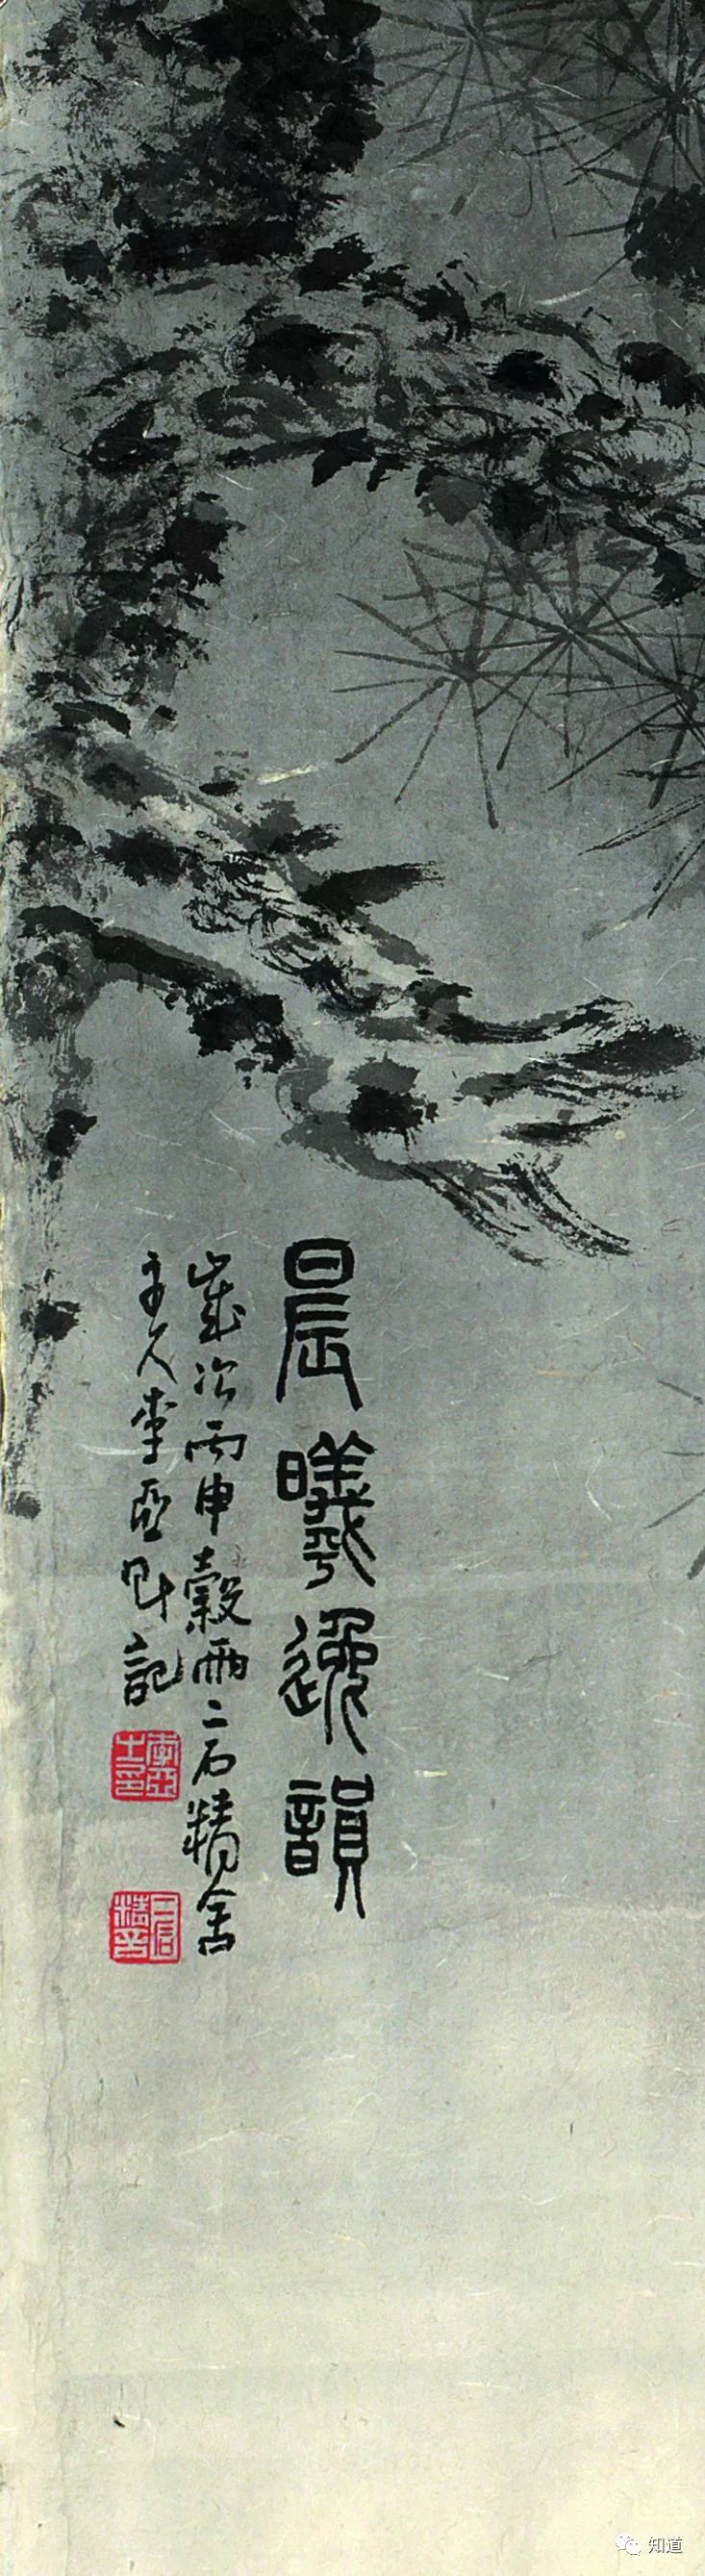 晨曦逸韻
歲次丙申穀雨二石精舍
主人李亞

記
二石精舍
知道